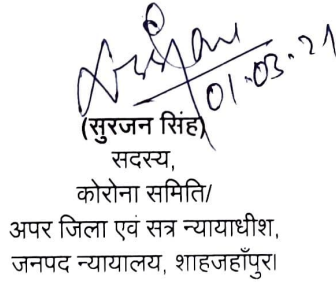 01.03.21
(सुरजन सिंह)
सदस्य,
कोरोना समिति/
अपर जिला एवं सत्र न्यायाधीश,
जनपद न्यायालय, शाहजहाँपुर।